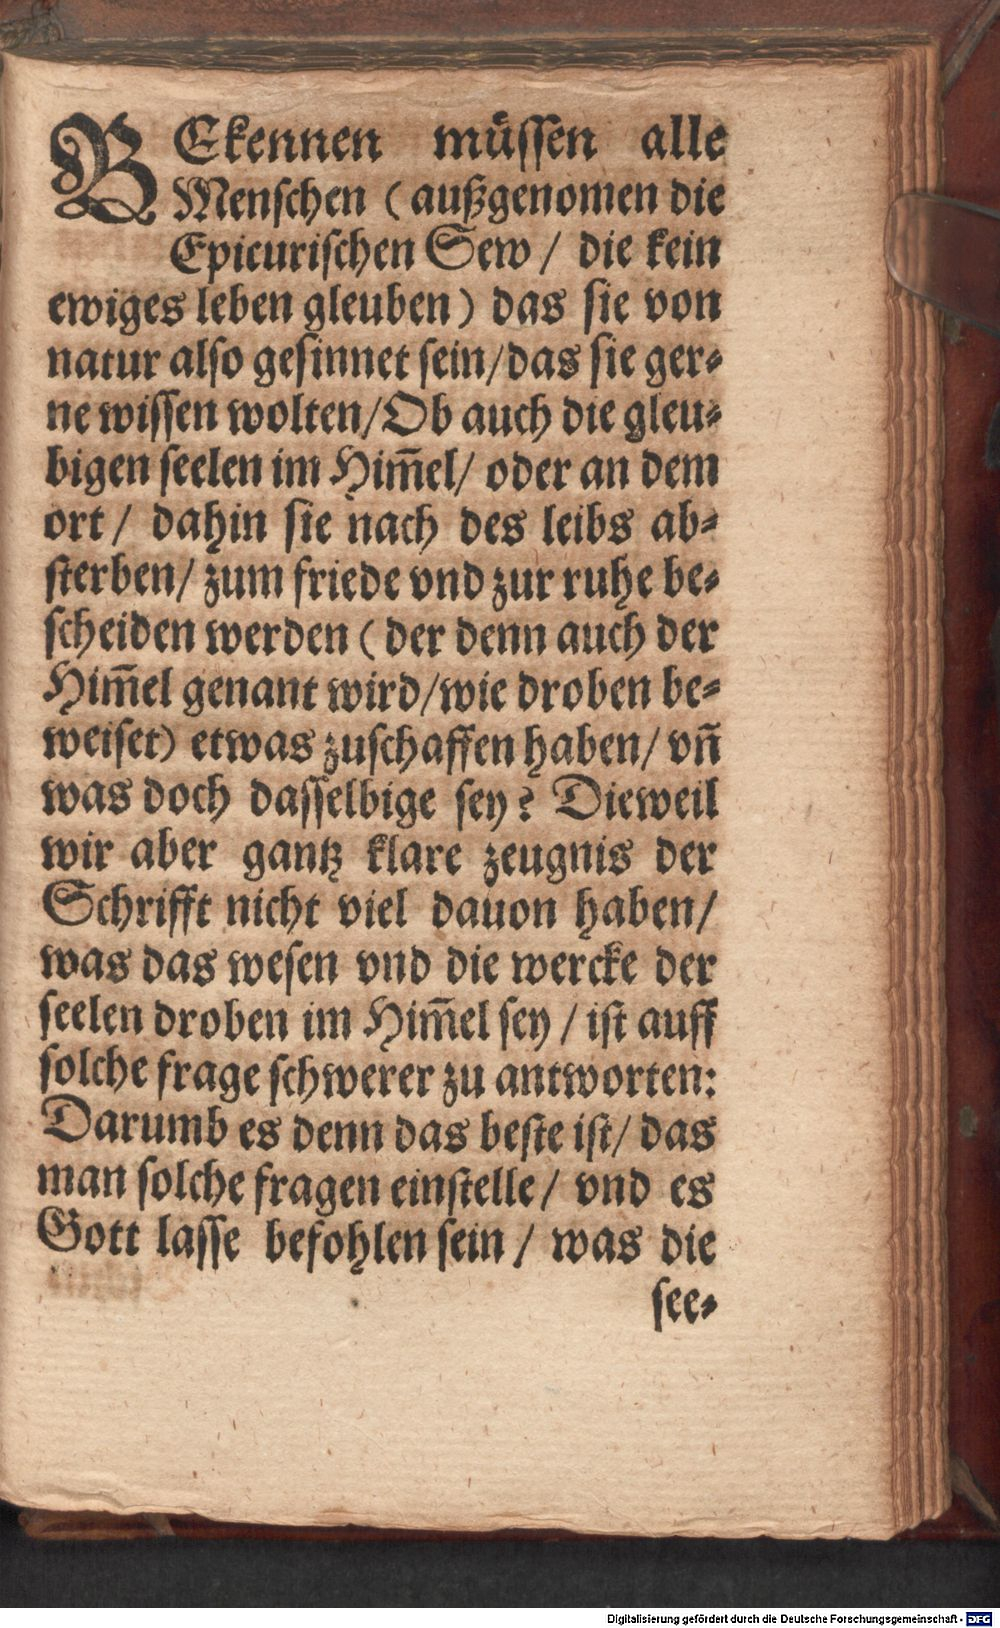 BEkennen müssen alle
Menschen (außgenomen die
Epicurischen Sew / die kein
ewiges leben gleuben) das sie von
natur also gesinnet sein/das sie ger-
ne wissen wolten/Ob auch die gleu-
bigen seelen im Him̄el/ oder an dem
ort / dahin sie nach des leibs ab-
sterben/ zum friede vnd zur ruhe be-
scheiden werden (der denn auch der
Him̄el genant wird/wie droben be-
weiset) etwas zuschaffen haben/ vn̄
was doch dasselbige sey? Dieweil
wir aber gantz klare zeugnis der
Schrifft nicht viel dauon haben/
was das wesen vnd die wercke der
seelen droben im Him̄el sey / ist auff
solche frage schwerer zu antworten:
Darumb es denn das beste ist/ das
man solche fragen einstelle/ vnd es
Gott lasse befohlen sein / was die
see-
Digitalisierung gefördert durch die Deutsche Forschungsgemeinschaft - DFG